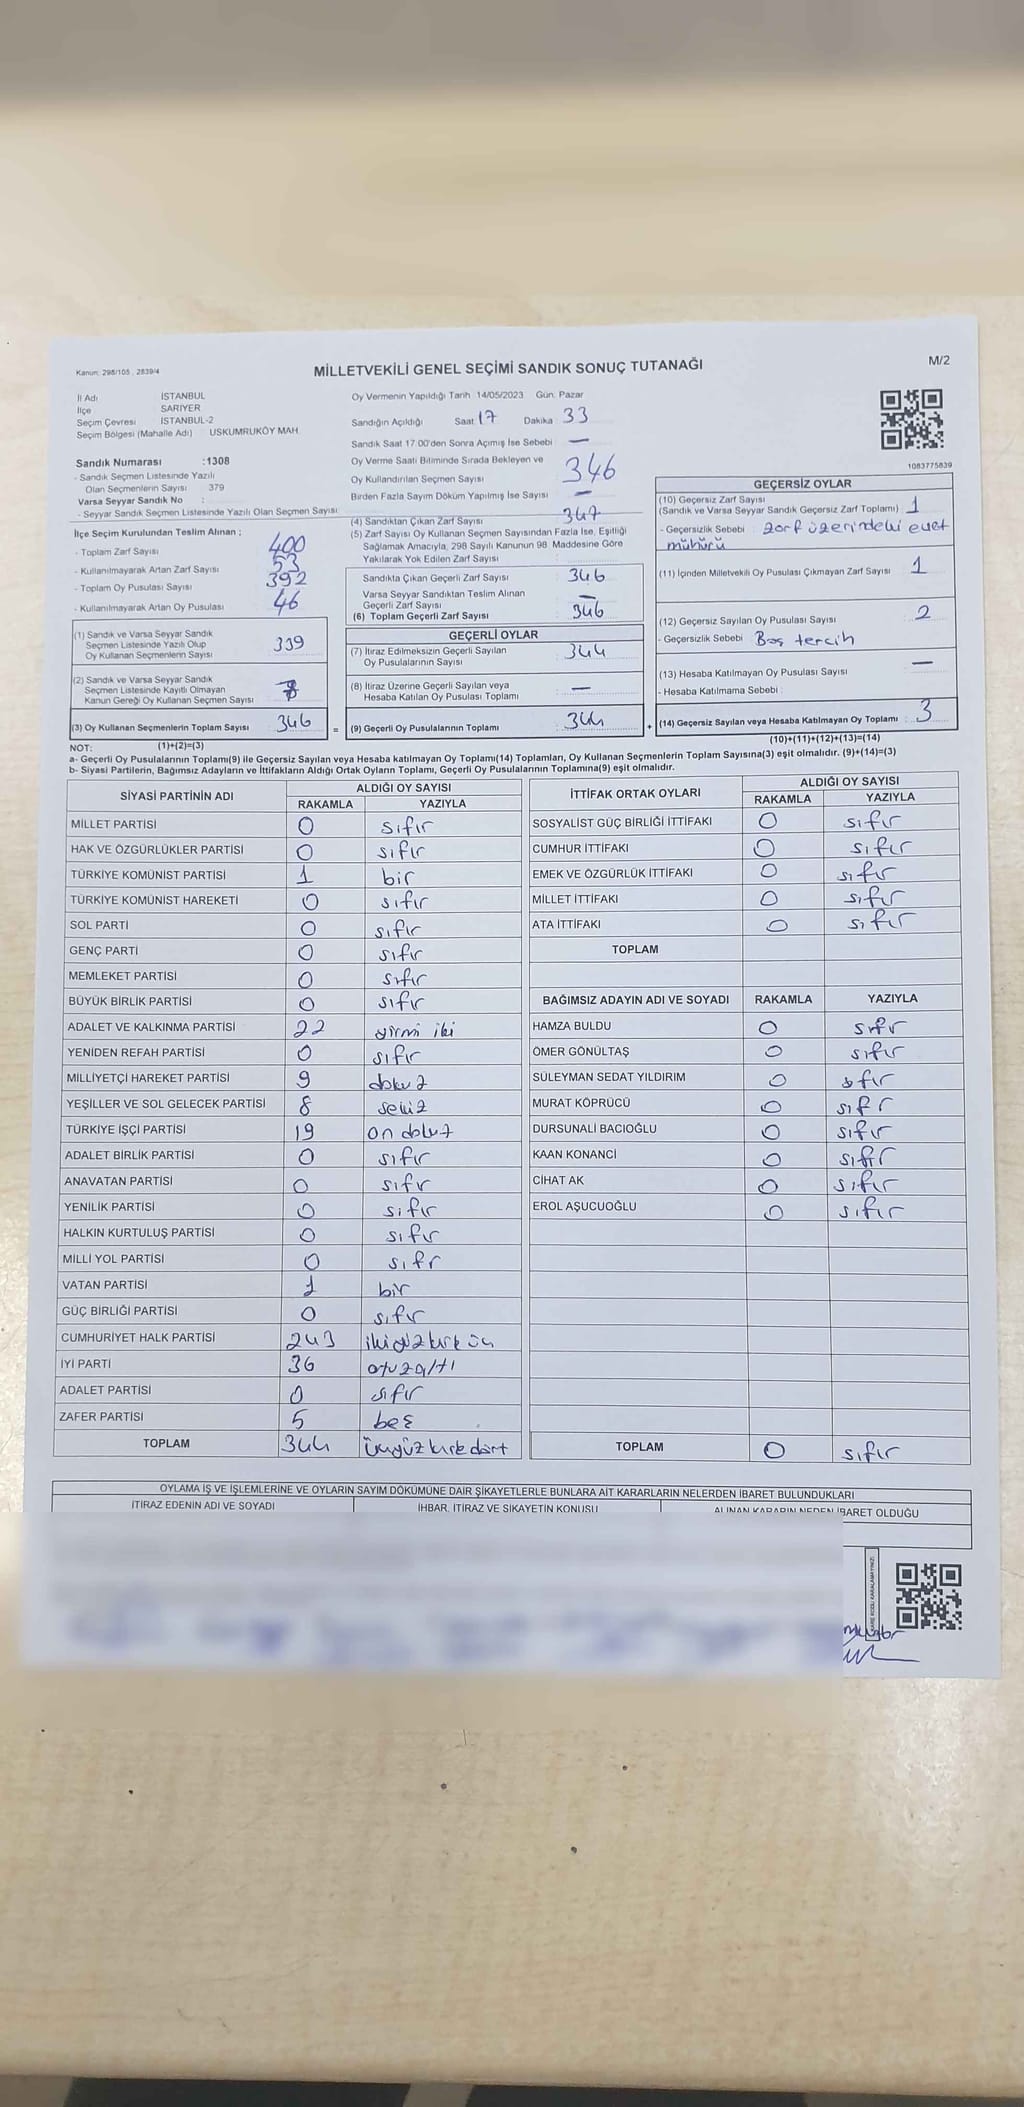 Kanun: 298/105 , 2839/4
MİLLETVEKİLİ GENEL SEÇİMİ SANDIK SONUÇ TUTANAĞI
M/2
İl Adı İSTANBUL
İlçe SARIYER
Seçim Çevresi İSTANBUL-2
Seçim Bölgesi (Mahalle Adı) USKUMRUKÖY MAH.
Sandık Numarası :1308
- Sandık Seçmen Listesinde Yazılı
Olan Seçmenlerin Sayısı 379
Varsa Seyyar Sandık No :
- Seyyar Sandık Seçmen Listesinde Yazılı Olan Seçmen Sayısı
Oy Vermenin Yapıldığı Tarih 14/05/2023 Gün: Pazar
Sandığın Açıldığı Saat 17 Dakika 33
Sandık Saat 17.00'den Sonra Açımış İse Sebebi : —
Oy Verme Saati Bitiminde Sırada Bekleyen ve
Oy Kullandırılan Seçmen Sayısı 346
Birden Fazla Sayım Döküm Yapılmış İse Sayısı —
1083775839
İlçe Seçim Kurulundan Teslim Alınan ;
- Toplam Zarf Sayısı 400
- Kullanılmayarak Artan Zarf Sayısı 53
- Toplam Oy Pusulası Sayısı 392
- Kullanılmayarak Artan Oy Pusulası 46
(1) Sandık ve Varsa Seyyar Sandık
Seçmen Listesinde Yazılı Olup
Oy Kullanan Seçmenlerin Sayısı 339
(2) Sandık ve Varsa Seyyar Sandık
Seçmen Listesinde Kayıtlı Olmayan
Kanun Gereği Oy Kullanan Seçmen Sayısı
(3) Oy Kullanan Seçmenlerin Toplam Sayısı 346
(4) Sandıktan Çıkan Zarf Sayısı 347
(5) Zarf Sayısı Oy Kullanan Seçmen Sayısından Fazla İse, Eşitliği
Sağlamak Amacıyla, 298 Sayılı Kanunun 98. Maddesine Göre
Yakılarak Yok Edilen Zarf Sayısı
Sandıkta Çıkan Geçerli Zarf Sayısı 346
Varsa Seyyar Sandıktan Teslim Alınan
Geçerli Zarf Sayısı —
(6) Toplam Geçerli Zarf Sayısı 346
GEÇERLİ OYLAR
(7) İtiraz Edilmeksizin Geçerli Sayılan
Oy Pusulalarının Sayısı 344
(8) İtiraz Üzerine Geçerli Sayılan veya
Hesaba Katılan Oy Pusulası Toplamı —
= (9) Geçerli Oy Pusulalarının Toplamı 344 +
GEÇERSİZ OYLAR
(10) Geçersiz Zarf Sayısı
(Sandık ve Varsa Seyyar Sandık Geçersiz Zarf Toplamı) 1
- Geçersizlik Sebebi : zarf üzerindeki evet
mühürü
(11) İçinden Milletvekili Oy Pusulası Çıkmayan Zarf Sayısı 1
(12) Geçersiz Sayılan Oy Pusulası Sayısı 2
- Geçersizlik Sebebi : Boş tercih
(13) Hesaba Katılmayan Oy Pusulası Sayısı —
- Hesaba Katılmama Sebebi :
(14) Geçersiz Sayılan veya Hesaba Katılmayan Oy Toplamı : 3
(10)+(11)+(12)+(13)=(14)
NOT: (1)+(2)=(3)
a- Geçerli Oy Pusulalarının Toplamı(9) ile Geçersiz Sayılan veya Hesaba katılmayan Oy Toplamı(14) Toplamları, Oy Kullanan Seçmenlerin Toplam Sayısına(3) eşit olmalıdır. (9)+(14)=(3)
b- Siyasi Partilerin, Bağımsız Adayların ve İttifakların Aldığı Ortak Oyların Toplamı, Geçerli Oy Pusulalarının Toplamına(9) eşit olmalıdır.
SİYASİ PARTİNİN ADI ALDIĞI OY SAYISI
RAKAMLA YAZIYLA
MİLLET PARTİSİ 0 sıfır
HAK VE ÖZGÜRLÜKLER PARTİSİ 0 sıfır
TÜRKİYE KOMÜNİST PARTİSİ 1 bir
TÜRKİYE KOMÜNİST HAREKETİ 0 sıfır
SOL PARTİ 0 sıfır
GENÇ PARTİ 0 sıfır
MEMLEKET PARTİSİ 0 sıfır
BÜYÜK BİRLİK PARTİSİ 0 sıfır
ADALET VE KALKINMA PARTİSİ 22 yirmi iki
YENİDEN REFAH PARTİSİ 0 sıfır
MİLLİYETÇİ HAREKET PARTİSİ 9 dokuz
YEŞİLLER VE SOL GELECEK PARTİSİ 8 sekiz
TÜRKİYE İŞÇİ PARTİSİ 19 on dokuz
ADALET BİRLİK PARTİSİ 0 sıfır
ANAVATAN PARTİSİ 0 sıfır
YENİLİK PARTİSİ 0 sıfır
HALKIN KURTULUŞ PARTİSİ 0 sıfır
MİLLİ YOL PARTİSİ 0 sıfır
VATAN PARTİSİ 1 bir
GÜÇ BİRLİĞİ PARTİSİ 0 sıfır
CUMHURİYET HALK PARTİSİ 243 ikiyüz kırk üç
İYİ PARTİ 36 otuzaltı
ADALET PARTİSİ 0 sıfır
ZAFER PARTİSİ 5 beş
TOPLAM 344 üçyüz kırk dört
İTTİFAK ORTAK OYLARI ALDIĞI OY SAYISI
RAKAMLA YAZIYLA
SOSYALİST GÜÇ BİRLİĞİ İTTİFAKI 0 sıfır
CUMHUR İTTİFAKI 0 sıfır
EMEK VE ÖZGÜRLÜK İTTİFAKI 0 sıfır
MİLLET İTTİFAKI 0 sıfır
ATA İTTİFAKI 0 sıfır
TOPLAM
BAĞIMSIZ ADAYIN ADI VE SOYADI RAKAMLA YAZIYLA
HAMZA BULDU 0 sıfır
ÖMER GÖNÜLTAŞ 0 sıfır
SÜLEYMAN SEDAT YILDIRIM 0 sıfır
MURAT KÖPRÜCÜ 0 sıfır
DURSUNALİ BACIOĞLU 0 sıfır
KAAN KONANCİ 0 sıfır
CİHAT AK 0 sıfır
EROL AŞUCUOĞLU 0 sıfır
TOPLAM 0 sıfır
OYLAMA İŞ VE İŞLEMLERİNE VE OYLARIN SAYIM DÖKÜMÜNE DAİR ŞİKAYETLERLE BUNLARA AİT KARARLARIN NELERDEN İBARET BULUNDUKLARI
İTİRAZ EDENİN ADI VE SOYADI İHBAR, İTİRAZ VE ŞİKAYETİN KONUSU ALINAN KARARIN NEDEN İBARET OLDUĞU